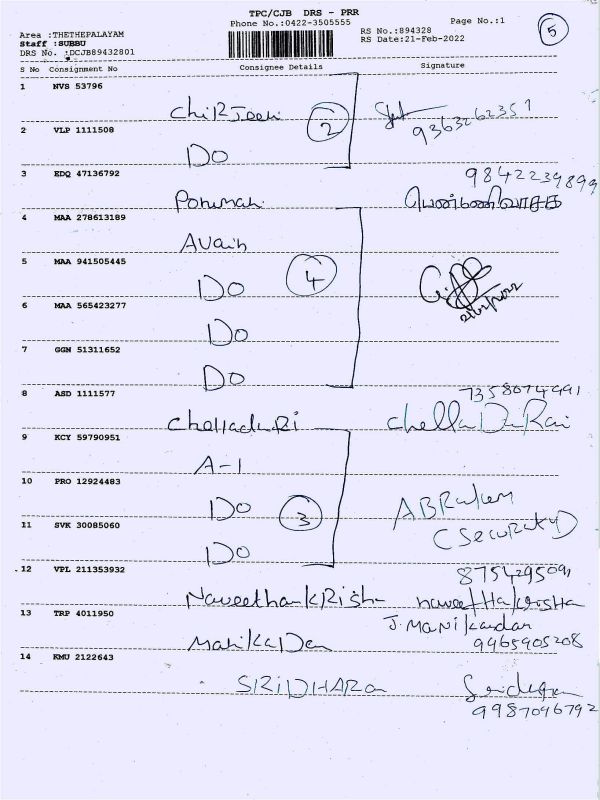 TPC/CJB DRS - PRR
Phone No.:0422-3505555 Page No.:1
5
Area :THETHEPALAYAM RS No.:894328
Staff :SUBBU RS Date:21-Feb-2022
DRS No. :DCJB89432801
S No Consignment No Consignee Details Signature
1 NVS 53796
2 9363262351
2 VLP 1111508
Do
3 EDQ 47136792
9842239899
4 MAA 278613189
Avain
5 MAA 941505445
Do 4
21/02/2022
6 MAA 565423277
Do
7 GGN 51311652
Do
8 ASD 1111577
7358074991
Chelladuri Chella Du Rai
9 KCY 59790951
A-1
10 PRO 12924483
Do 3
11 SVK 30085060
Do
12 VPL 211353932
8754295091
Naveethankrish
13 TRP 4011950
J. Manikandan
ManikaDan 9965905208
14 KMU 2122643
SRIDHARan
9987096792